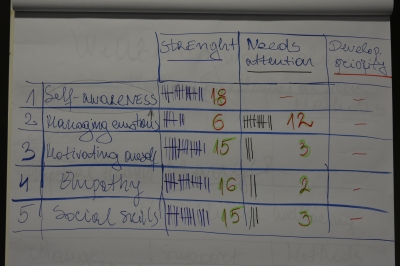 Strenght Needs attention Develop. priority
1 Self-awareness 18 - -
2. Managing emotions 6 12 -
3 Motivating oneself 15 3 -
4 Empathy 16 2 -
5 Social skills 15 3 -